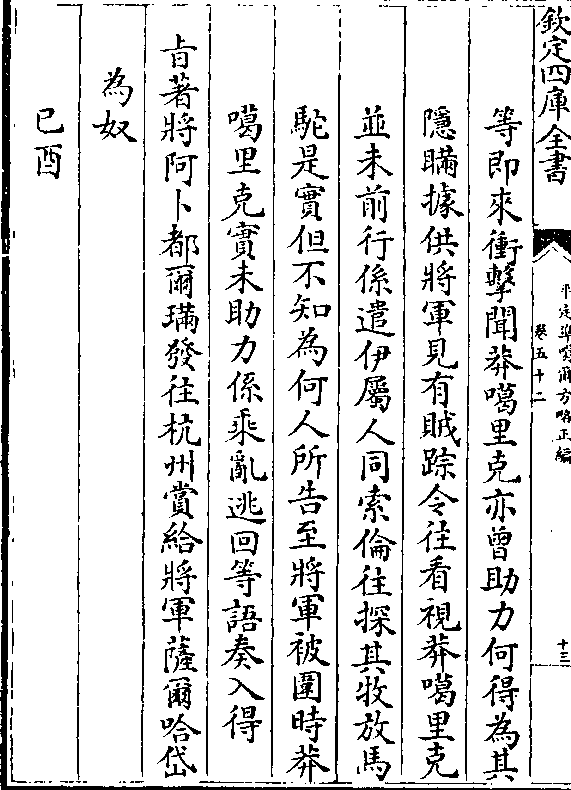 欽定四庫全書
平定準噶爾方略正編
卷五十二
十三
等即來衝擊聞莽噶里克亦曾助力何得為其
隱瞞據供將軍見有賊踪令往看視莽噶里克
並未前行係遣伊屬人同索倫往探其牧放馬
駝是實但不知為何人所告至將軍被圍時莽
噶里克實未助力係乘亂逃回等語奏入得
㫖著將阿卜都爾璊發往杭州賞給將軍薩爾哈岱
為奴
己酉